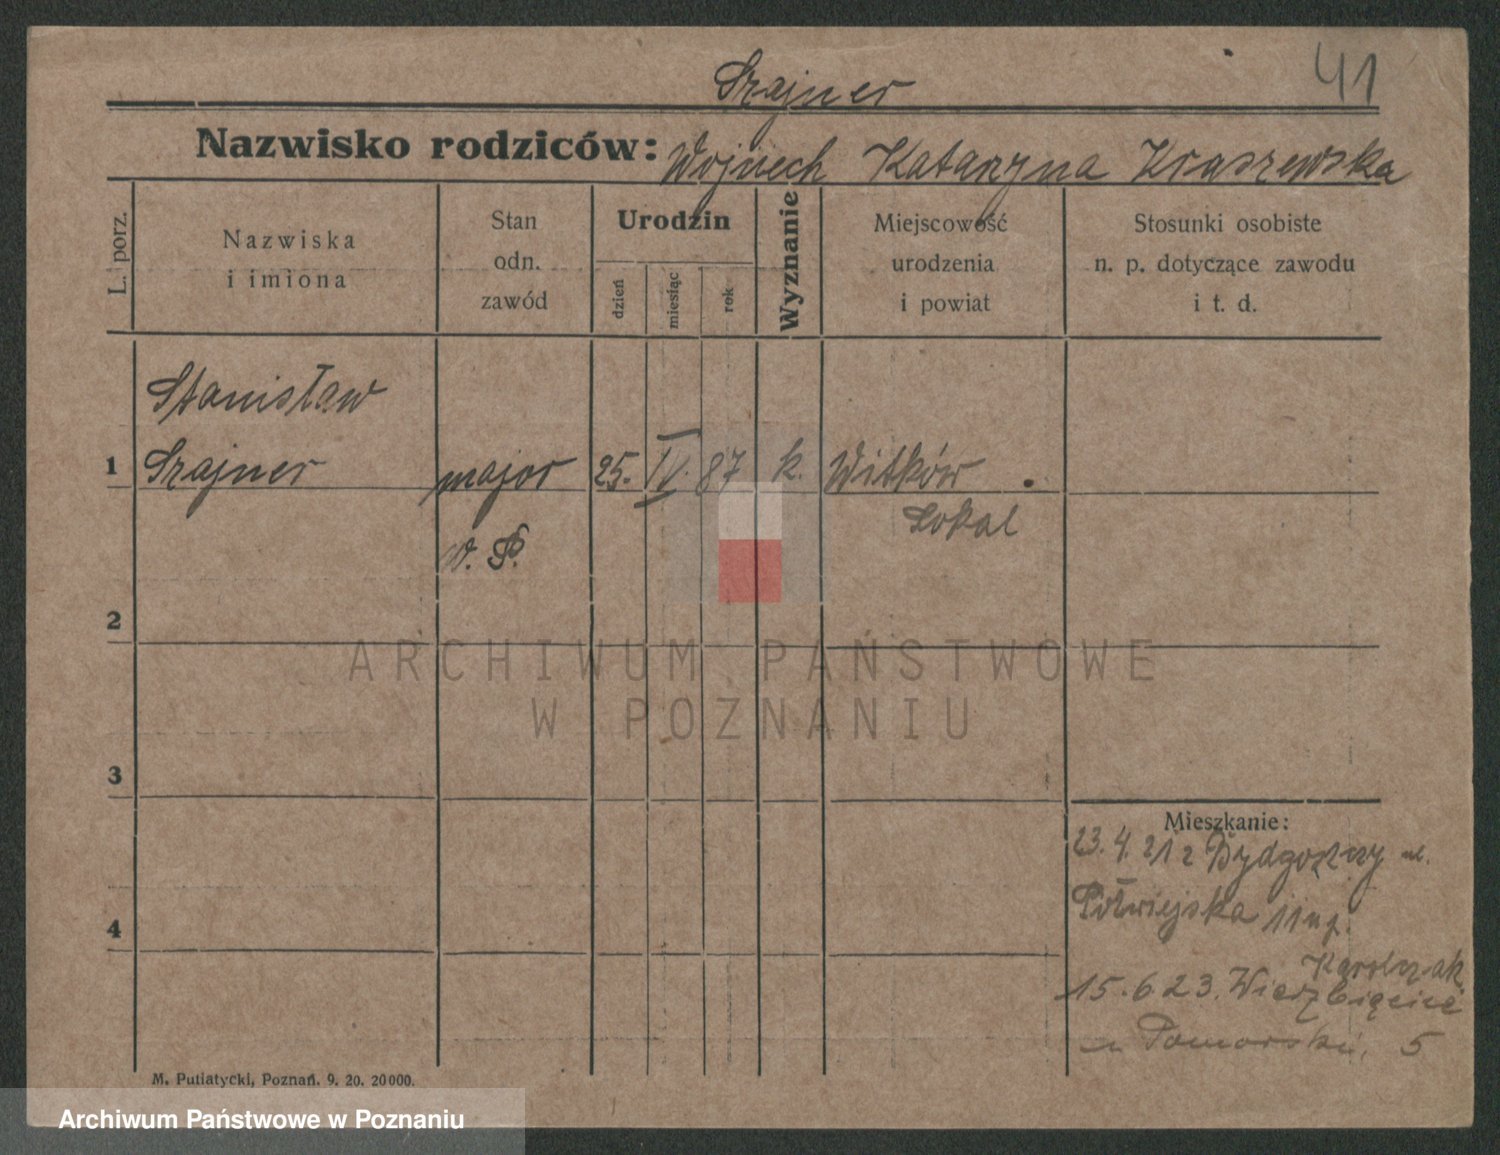 Szajner
41
Nazwisko rodziców: Wojciech Katarzyna Kraszewska
L. porz.
Nazwiska
i imiona
Stan
odn.
zawód
Urodzin
dzień
miesiąc
rok
Wyznanie
Miejscowość
urodzenia
i powiat
Stosunki osobiste
n. p. dotyczące zawodu
i t. d.
Stanisław
1 Szajner major 25. IV. 87 k. Witków
Sokal
w. P.
2
3
4
Mieszkanie:
23.4.21 z Bydgoszczy ul.
Półwiejska 11
Karolczak
15.6 23. Wierzbięcice
5
M. Putiatycki, Poznań. 9. 20. 20000.
ARCHIWUM PAŃSTWOWE
W POZNANIU
Archiwum Państwowe w Poznaniu